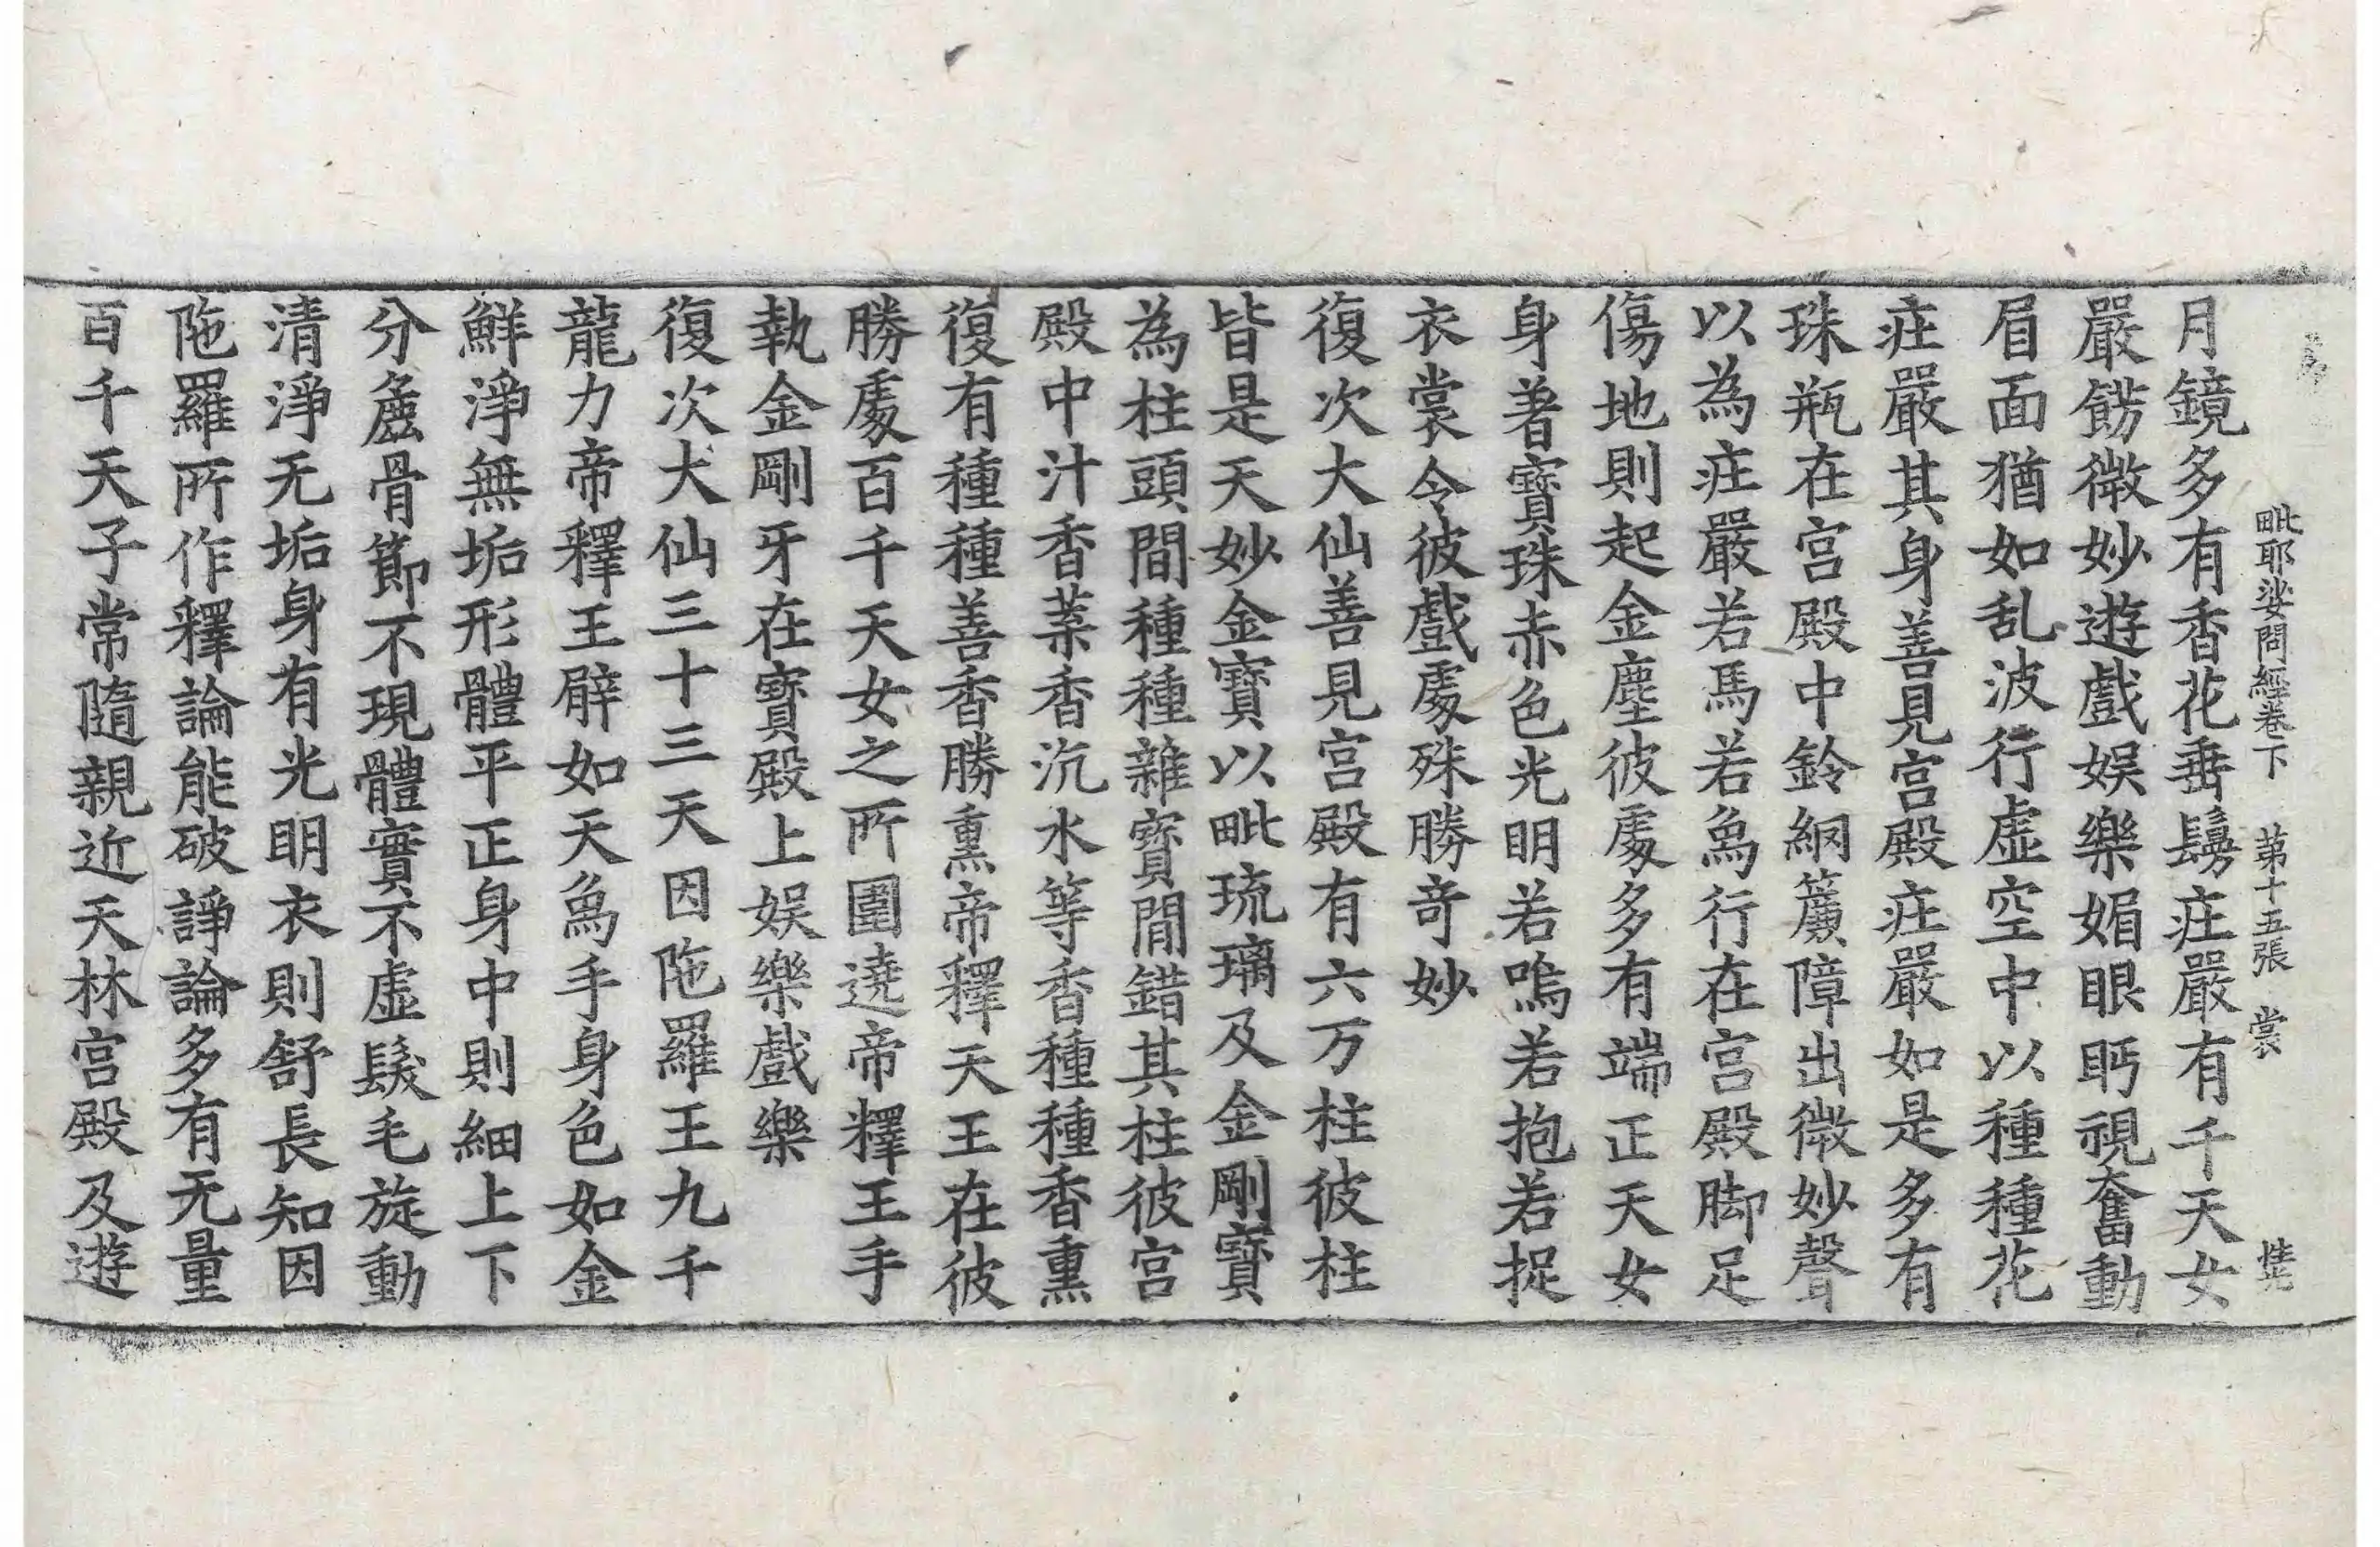 毗耶娑問經卷下　苐十五張　裳
月鏡多有香花垂鬘庄嚴有千天女
嚴餝微妙遊戲娛樂媚眼眄視奮動
眉面猶如乱波行虛空中以種種花
庄嚴其身善見宮殿庄嚴如是多有
珠瓶在宮殿中鈴網簾障出微妙聲
以為庄嚴若馬若鳥行在宮殿脚足
傷地則起金塵彼處多有端正天女
身著寶珠赤色光明若嗚若抱若捉
衣裳令彼戲處殊勝奇妙
復次大仙善見宮殿有六万柱彼柱
皆是天妙金寶以毗琉璃及金剛寶
為柱頭間種種雜寶間錯其柱彼宮
殿中汁香葉香沉水等香種種香熏
復有種種善香勝熏帝釋天王在彼
勝處百千天女之所圍遶帝釋王手
執金剛牙在寶殿上娛樂戲樂
復次大仙三十三天因陁羅王九千
龍力帝釋王臂如天鳥手身色如金
鮮淨無垢形體平正身中則細上下
分麁骨節不現體實不虛髮毛旋動
清淨无垢身有光明衣則舒長知因
陁羅所作釋論能破諍論多有无量
百千天子常隨親近天林宮殿及遊